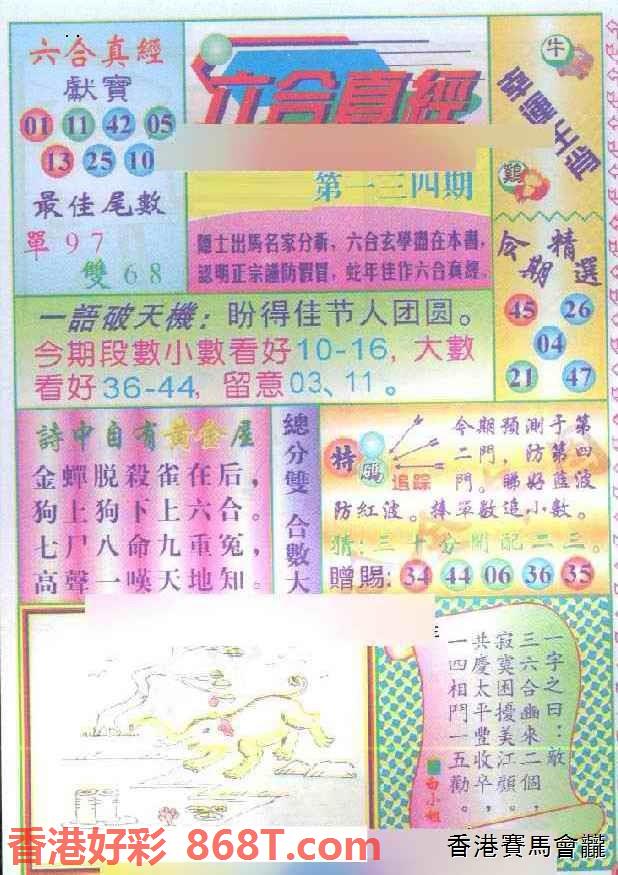 六合真經
獻寶
01 11 42 05
13 25 10
最佳尾數
單97
雙68
六合真經
第一三四期
隱士出馬名家分析,六合玄學盡在本書,
認明正宗謹防假冒,蛇年佳作六合真經。
牛
鷄
今期
精選
45 26
04
21 47
一語破天機:盼得佳节人团圆。
今期段數小數看好10-16,大數
看好36-44,留意03、11。
詩中自有黃金屋
金蟬脱殺雀在后,
狗上狗下上六合。
七尸八命九重冤,
高聲一嘆天地知。
總分雙 合數大
特碼
追踪
今期預測于第
二門,防第四
門。睇好藍波
防紅波。捧單數追小數。
猜:三十分開配二三。
贈賜:34 44 06 36 35
一字之曰:敵
三六合幽來二個
寂寞困擾美江頭,
共慶太平豐收卒,
一四相鬥一五勸。
白小姐
香港好彩 868T.com
香港賽馬會